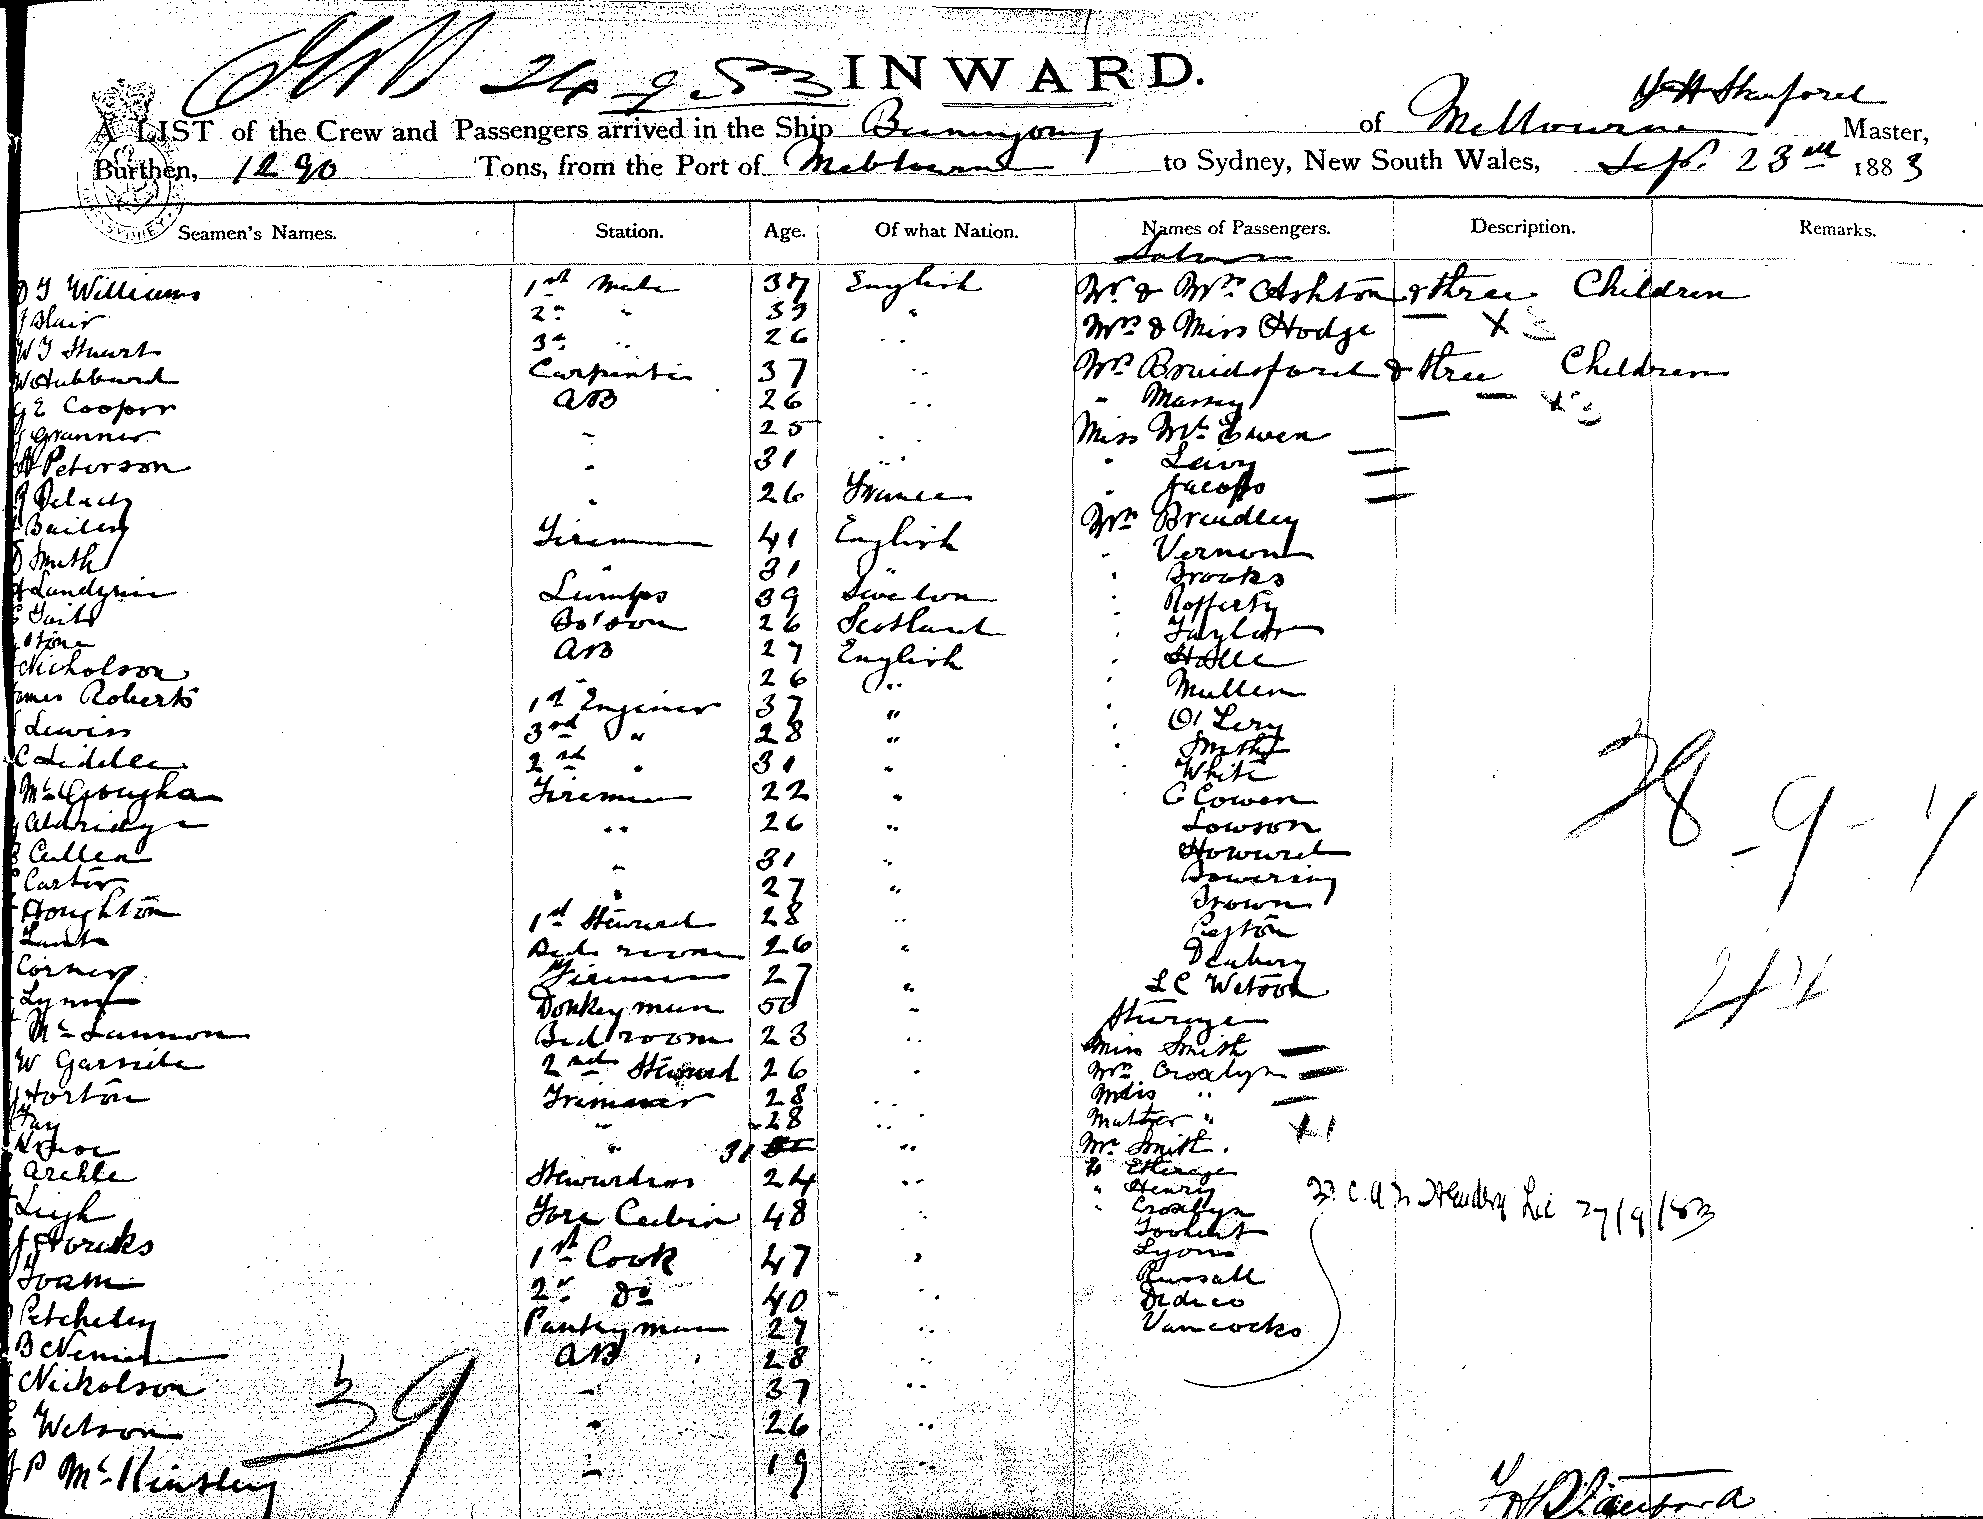 24 9 83 INWARD.
W H Stanford
A LIST of the Crew and Passengers arrived in the Ship Buninyong of Melbourne Master,
Burthen, 1290 Tons, from the Port of Melbourne to Sydney, New South Wales, Sep. 23rd 1883
Seamen's Names. Station. Age. Of what Nation. Names of Passengers. Description. Remarks.
Saloon
Williams 1st Mate 37 English Mr & Mrs Ashton & three Children
Blair 2nd " 33 " Mrs & Miss Hodge
W J Stuart 3rd " 26 " Mrs Braidsford & three Children
W Hubbard Carpenter 37 " " Massey
G E Cooper AB 26 " Miss McEwen
Granner " 25 " " Leivy
Peterson " 31 " " Jacobs
" 26 France Mr Bradley
Bailey Fireman 41 English " Vernon
Smith " 31 " Brooks
Lundgrin Lamps 39 " Rofferty
Tait Bo'son 26 Scotland " Taylor
Stone AB 27 English " Halle
Nicholson " 26 " " Mullen
James Roberts 1st Enginer 37 " " O'Lery
Lewis 3rd " 28 " " Smith
C Liddle 2nd " 31 " White
Fireman 22 " C Cowen
Aldridge " 26 " Lowson
Cullen " 31 " Howard
Carter " 27 " Bowering
Houghton 1st Steward 28 " Brown
Lamb Bed room 26 "
Corner Fireman 27 " Denbery
Lynn Donkeyman 50 " L C Watson
McLannon Bed room 23 " Steerage
W Garside 2nd Steward 26 " Miss Smith
Horton Trimmer 28 " Mrs Croxlyn
Fay " 28 " Miss "
" 31 " Master "
Archle Stewardess 24 " Mr Smith
Leigh Fore Cabin 48 " Etherege
1st Cook 47 " " Henry
Foam 2nd do 40 " " Croxlyn
Petcheley Pantryman 27 "
AB 28 " Lyons
Nicholson " 37 " Russall
Watson " 26 "
J P McKinsley " 19 " Vancocks
28 - 9 - 7
44
27/9/83
39